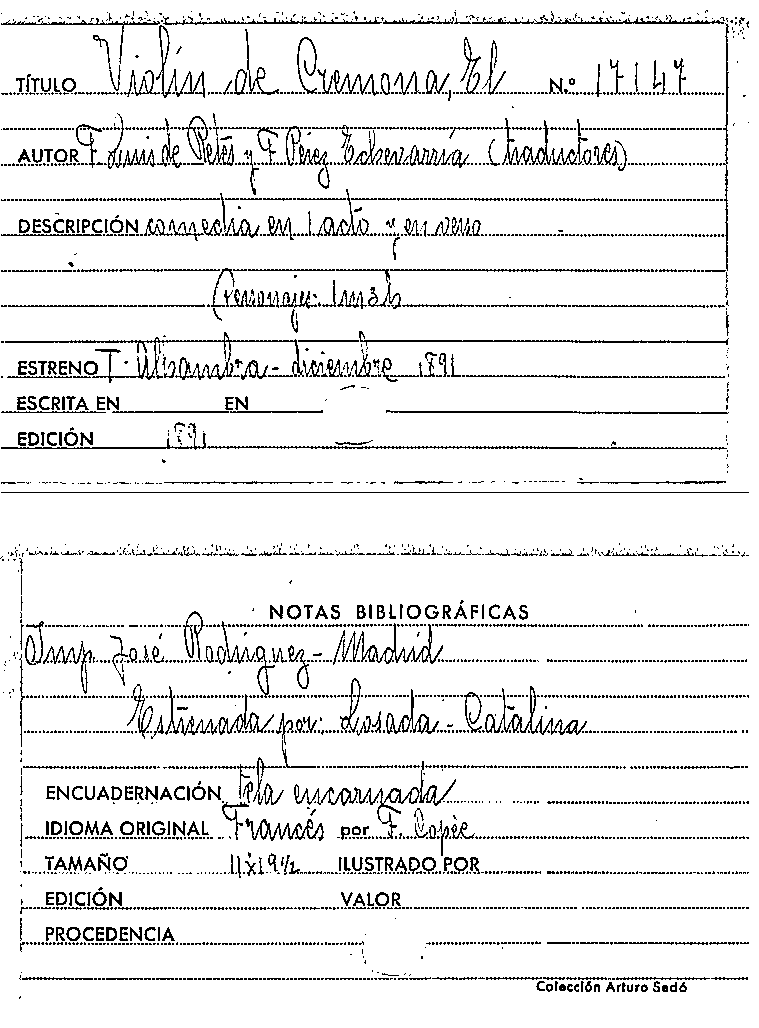 TÍTULO Violín de Cremona, El N.º 17147
AUTOR F. Luis de Retes y F. Pérez Echevarría (traductores)
DESCRIPCIÓN comedia en 1 acto y en verso
Personajes: 1m3h
ESTRENO T. Alhambra - diciembre 1891
ESCRITA EN EN
EDICIÓN 1891
NOTAS BIBLIOGRÁFICAS
Imp. José Rodríguez - Madrid
Estrenada por: Losada - Catalina
ENCUADERNACIÓN tela encarnada
IDIOMA ORIGINAL Francés por F. Copée
TAMAÑO 11x19½ ILUSTRADO POR
EDICIÓN VALOR
PROCEDENCIA
Colección Arturo Sedó